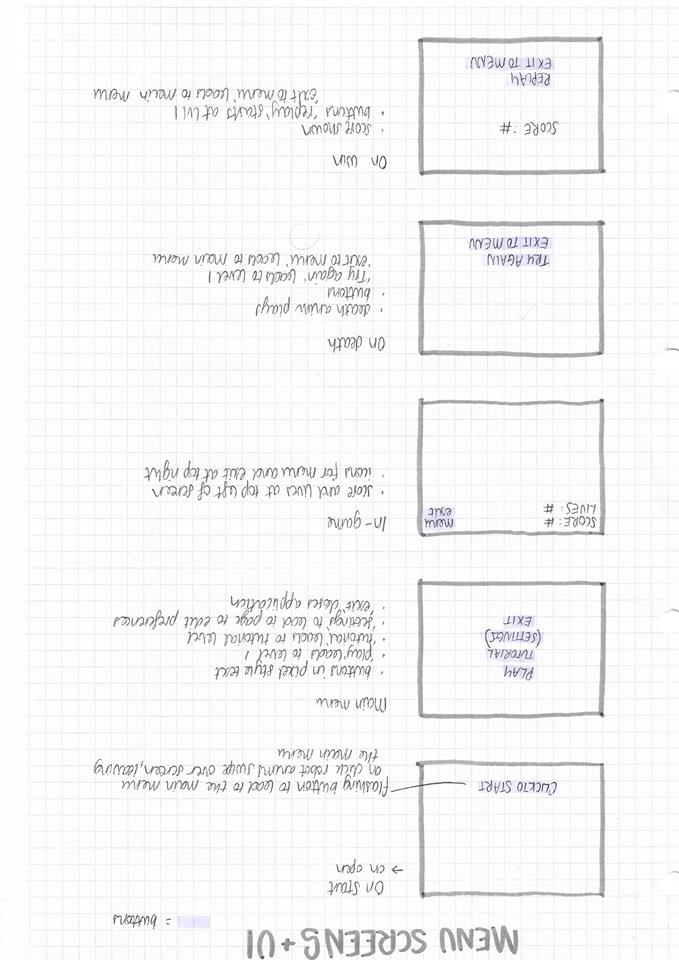 MENU SCREENS + UI
= buttons
On Start
→ on open
CLICK TO START
flashing button to lead to the main menu
on click robot anims swipe over screen, leaving
the main menu
Main menu
PLAY
TUTORIAL
(SETTINGS)
EXIT
· buttons in pixel style text
· 'play' leads to level 1
· 'tutorial' leads to tutorial level
· 'settings' to lead to page to edit preferences
· 'exit' closes application
SCORE: #
LIVES: #
menu
exit
In-game
· score and lives at top left of screen
· icons for menu and exit at top right
On death
· death anim plays
· buttons
'Try again' leads to level 1
'exit to menu' leads to main menu
TRY AGAIN
EXIT TO MENU
On win
SCORE : #
· score shown
· buttons 'replay' starts at lvl 1
'exit to menu' leads to main menu
REPLAY
EXIT TO MENU